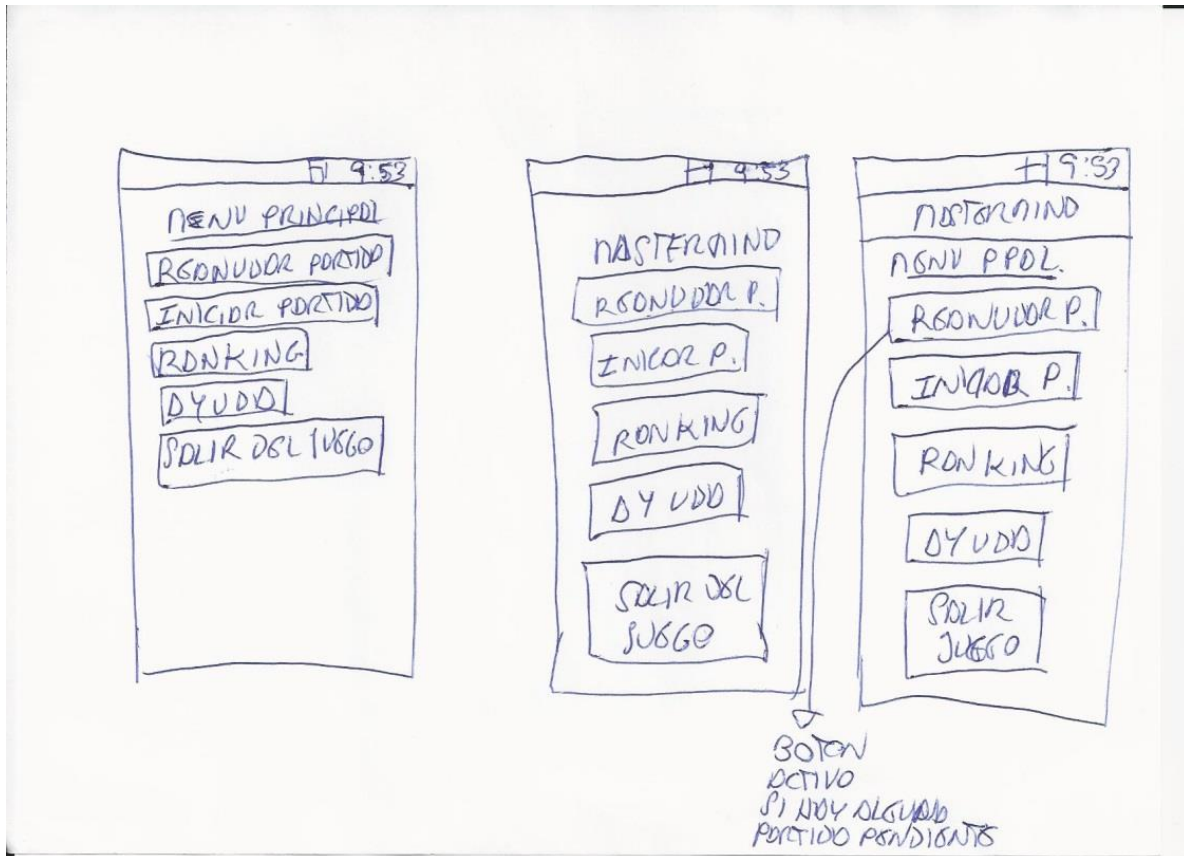 9:53
MENU PRINCIPAL
REANUDAR PARTIDA
INICIAR PARTIDA
RANKING
AYUDA
SALIR DEL JUEGO
9:53
MASTERMIND
REANUDAR P.
INICAR P.
RANKING
AYUDA
SALIR DEL
JUEGO
9:53
MASTERMIND
MENU PPAL.
REANUDAR P.
INICIAR P.
RANKING
AYUDA
SALIR
JUEGO
BOTON
ACTIVO
SI HAY ALGUNA
PARTIDA PENDIENTE